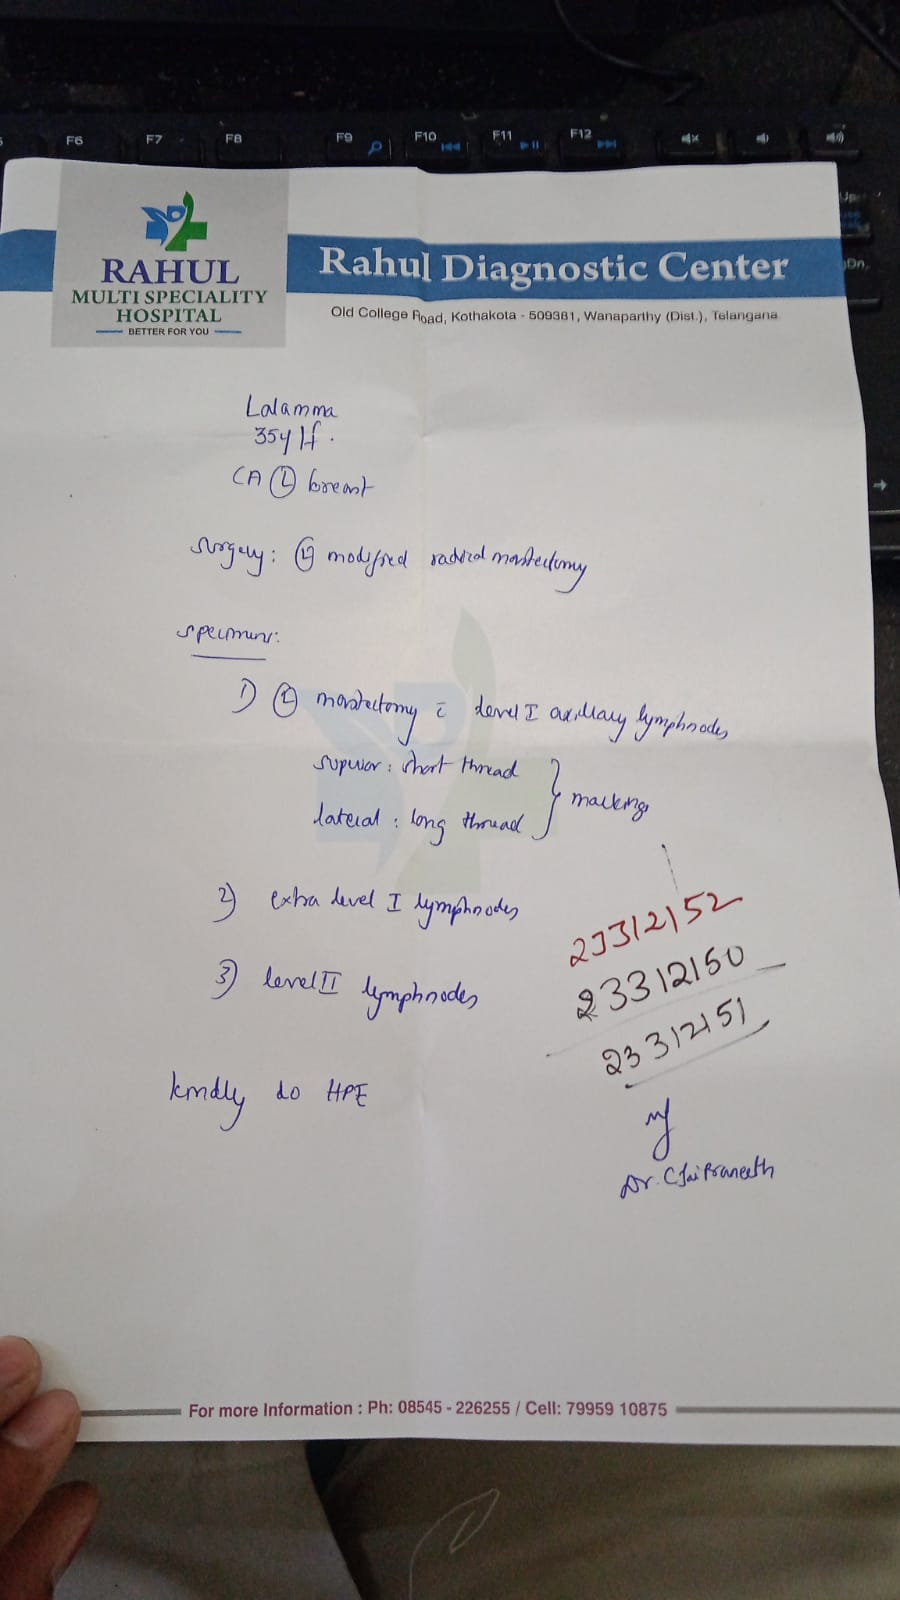 F6 F7 F8 F9 F10 F11 F12
RAHUL
MULTI SPECIALITY
HOSPITAL
BETTER FOR YOU
Rahul Diagnostic Center
Old College Road, Kothakota - 509381, Wanaparthy (Dist.), Telangana
Lalamma
35y/f.
CA Ⓛ breast
surgery: Ⓛ modified radical mastectomy
specimens:
1) Ⓛ mastectomy c̄ level I axillary lymphnodes
superior: short thread
lateral: long thread } markings
2) extra level I lymphnodes
3) level II lymphnodes
23312152
23312150
23312151
kindly do HPE
Dr. C Jai Praneeth
For more Information : Ph: 08545 - 226255 / Cell: 79959 10875